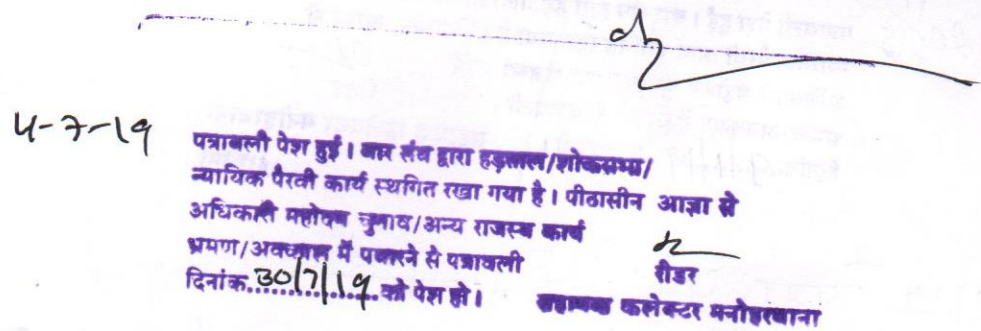 4-7-19
पत्रावली पेश हुई। बार संघ द्वारा हड़ताल/शोकसभा/
न्यायिक पैरवी कार्य स्थगित रखा गया है। पीठासीन आज्ञा से
अधिकारी महोदय चुनाव/अन्य राजस्व कार्य
भ्रमण/अवकाश में पधारने से पत्रावली
रीडर
दिनांक 30/7/19 को पेश हो। सहायक कलेक्टर मनोहरथाना